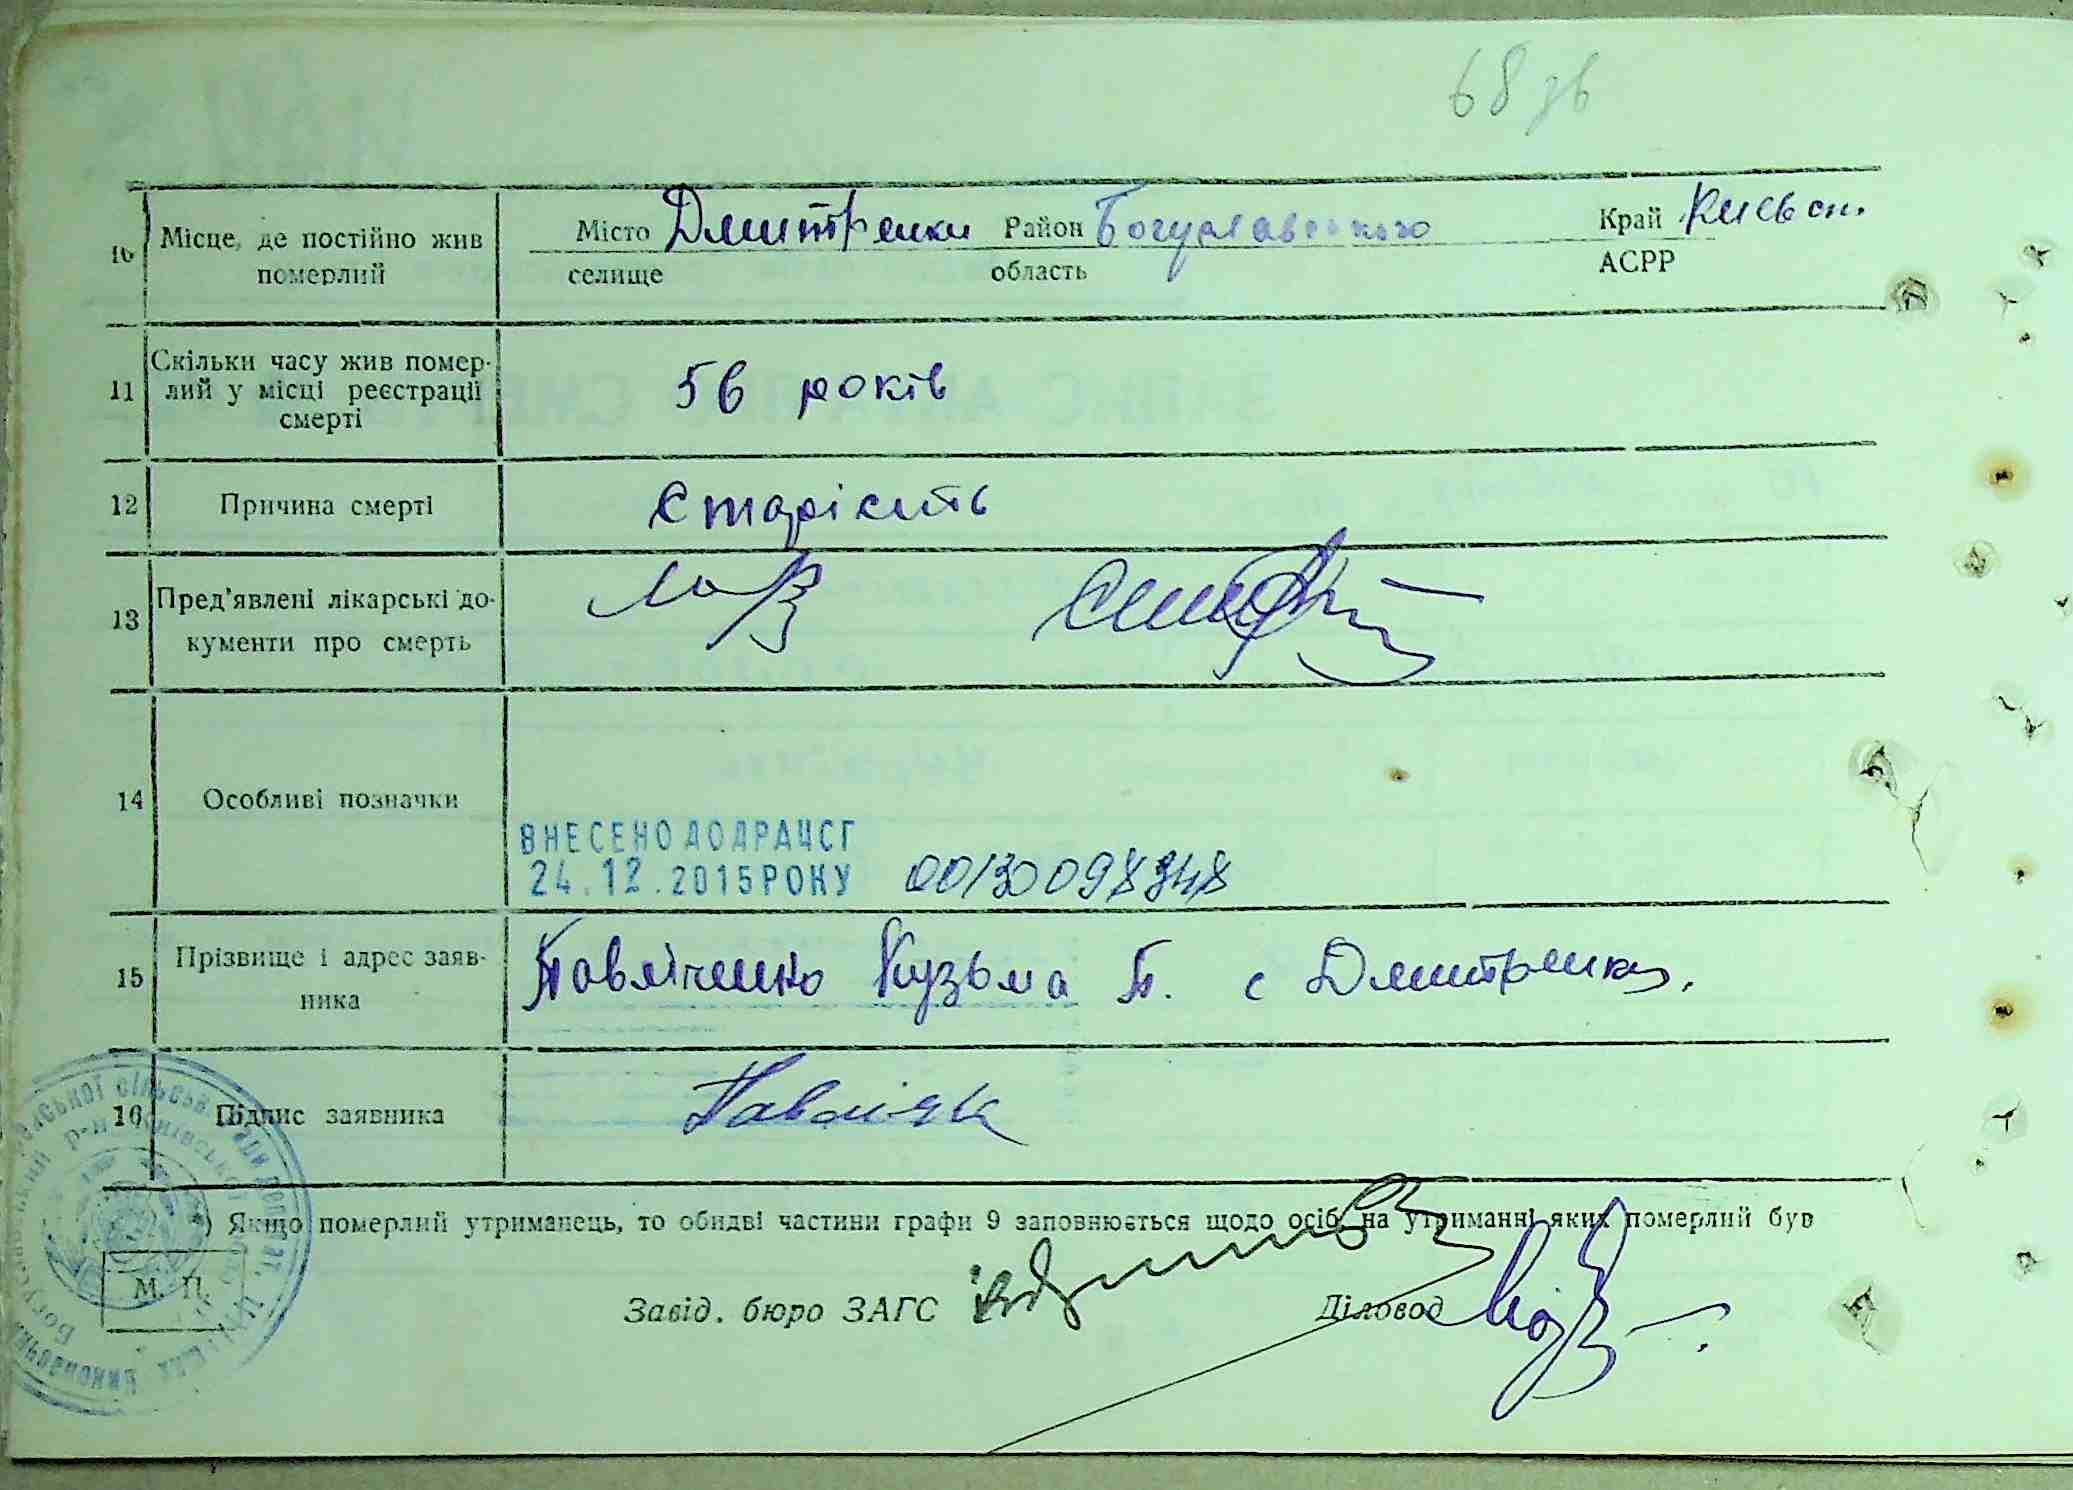 68 зв
10 Місце, де постійно жив померлий
Місто Дмитренки Район Богуславського Край Київськ.
селище область АСРР
11 Скільки часу жив помер-
лий у місці реєстрації
смерті
56 років
12 Причина смерті старість
13 Пред'явлені лікарські до-
кументи про смерть
14 Особливі позначки
ВНЕСЕНО ДО ДРАЦСГ
24.12.2015 РОКУ 00130098348
15 Прізвище і адрес заяв-
ника
Павліченко Кузьма П. с Дмитренки.
16 Підпис заявника
) Якщо померлий утриманець, то обидві частини графи 9 заповнюється щодо осіб, на утриманні яких померлий був
М. П.
Завід. бюро ЗАГС Діловод